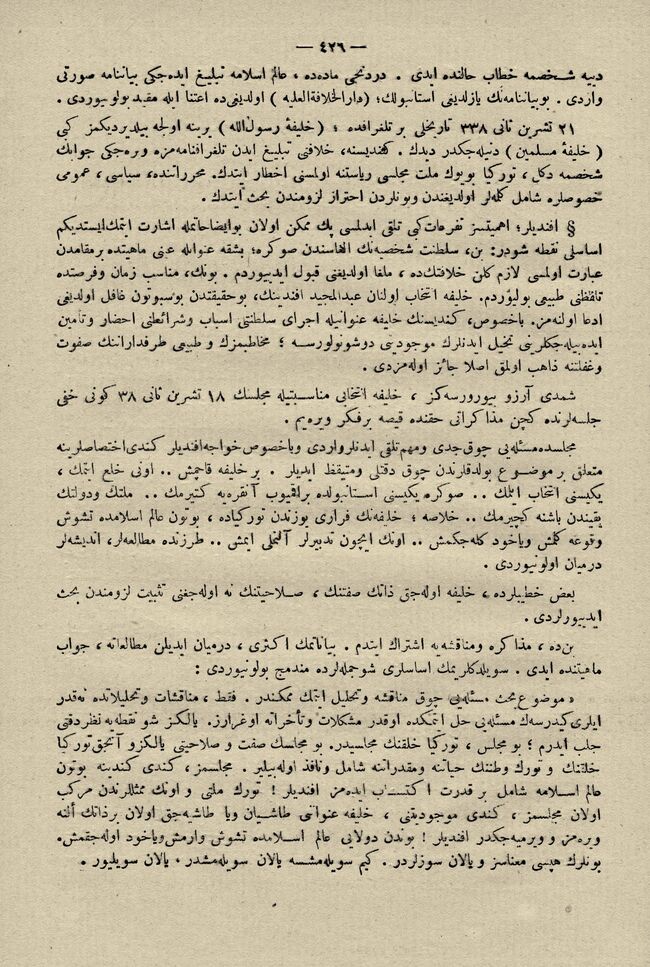 — ٤٢٦ —
دییه شخصمه خطاب حالنده ایدی . دردنجی مادەده ، عالم اسلامه تبلیغ ایده‌جكی بیاننامه صورتی
واردی . بو بیاننامه‌نك یازلدیغی استانبولك؛ (دارالخلافة العلیه) اولدیغی‌ده اعتنا ایله مقید بولونیوردی .
٢١ تشرین ثانی ٣٣٨ تاریخلی بر تلغرافده ؛ ( خلیفهٔ رسول‌الله ) یرینه اولجه بیلدیردیكمز كبی
( خلیفهٔ مسلمین ) دنیله‌جكدر دیدك . كندیسنه، خلافنی تبلیغ ایدن تلغرافنامه‌مزه ویره‌جكی جوابك
شخصمه دكل ، توركیا بویوك ملت مجلسی ریاستنه اولمسنی اخطار ایتدك. محرراتنده، سیاسی ، عمومی
خصوصلره شامل كلمه‌لر اولدیغندن وبونلردن احتراز لزومندن بحث ایتدك .
§ افندیلر؛ اهمیتسز تفرعات كبی تلقی ایدلمسی پك ممكن اولان بو ایضاحاتمله اشارت ایتمك ایستدیكم
اساسلی نقطه شودر: بن، سلطنت شخصیه‌نك الغاسندن صوكره؛ بشقه عنوانله عینی ماهیتده برمقامدن
عبارت اولمسی لازم كلن خلافتك‌ده ، ملغا اولدیغنی قبول ایدییوردم . بونك، مناسب زمان وفرصتده
تلفظنی طبیعی بولیوردم. خلیفه انتخاب اولنان عبدالمجید افندینك، بو حقیقتدن بوسبوتون غافل اولدیغی
ادعا اولنه‌مز. باخصوص، كندیسنك خلیفه عنوانیله اجرای سلطنتی اسباب وشرائطنی احضار وتأمین
ایده‌بیله‌جكلرینی تخیل ایدنلرك موجودیتی دوشونولورسه ؛ مخاطبمزك و طبیعی طرفدارانك صفوت
وغفلتنه ذاهب اولمق اصلا جائز اوله‌مزدی .
شمدی آرزو بیورورسه‌كز ، خلیفه انتخابی مناسبتیله مجلسك ١٨ تشرین ثانی ٣٨ كونی خفی
جلسه‌لرنده كچن مذاكراتی حقنده قیصه برفكر ویره‌یم .
مجلسده مسئله‌یی چوق جدی ومهم تلقی ایدنلر واردی وباخصوص خواجه افندیلر كندی اختصاصلرینه
متعلق بر موضوع بولدقلرندن چوق دقتلی ومتیقظ ایدیلر . بر خلیفه قاچمش .. اونی خلع ایتمك ،
یكیسنی انتخاب ایتمك .. صوكره یكیسنی استانبولده براقمیوب آنقره‌یه كتیرمك .. ملتك ودولتك
یقیندن باشنه كچیرمك .. خلاصه ؛ خلیفه‌نك فراری یوزندن توركیاده ، بوتون عالم اسلامده تشوش
وقوعه كلمش ویاخود كله‌جكمش .. اونك ایچون تدبیرلر آلنملی ایمش .. طرزنده مطالعه‌لر، اندیشه‌لر
درمیان اولونیوردی .
بعض خطیبلرده ، خلیفه اوله‌جق ذاتك صفتنك ، صلاحیتنك نه اوله‌جغنی تثبیت لزومندن بحث
ایدییورلردی .
بن‌ده ، مذاكره ومناقشه‌یه اشتراك ایتدم . بیاناتمك اكثری ، درمیان ایدیلن مطالعاته ، جواب
ماهیتنده ایدی . سویلدكلریمك اساسلری شو جمله‌لرده مندمج بولونیوردی :
« موضوع بحث مسئله‌یی چوق مناقشه وتحلیل ایتمك ممكندر . فقط ، مناقشات وتحلیلاتده نه‌قدر
ایلری كیدرسه‌ك مسئله‌یی حل ایتمكده اوقدر مشكلات وتأخراته اوغرارز. یالكز شو نقطه‌یه نظر دقتی
جلب ایدرم ؛ بو مجلس ، توركیا خلقنك مجلسیدر. بو مجلسك صفت و صلاحیتی یالكز و آنجق توركیا
خلقنك و تورك وطننك حیاتنه ومقدراتنه شامل ونافذ اوله‌بیلیر . مجلسمز ، كندی كندینه بوتون
عالم اسلامه شامل بر قدرت اكتساب ایده‌مز افندیلر ! تورك ملتی و اونك ممثللرندن مركب
اولان مجلسمز ، كندی موجودیتنی ، خلیفه عنوانی طاشییان ویا طاشیه‌جق اولان برذاتك النه
ویره‌مز و ویرمیه‌جكدر افندیلر ! بوندن دولایی عالم اسلامده تشوش وارمش ویاخود اوله‌جقمش.
بونلرك هپسی معناسز و یالان سوزلردر . كیم سویله‌مشسه یالان سویله‌مشدر ، یالان سویلیور .